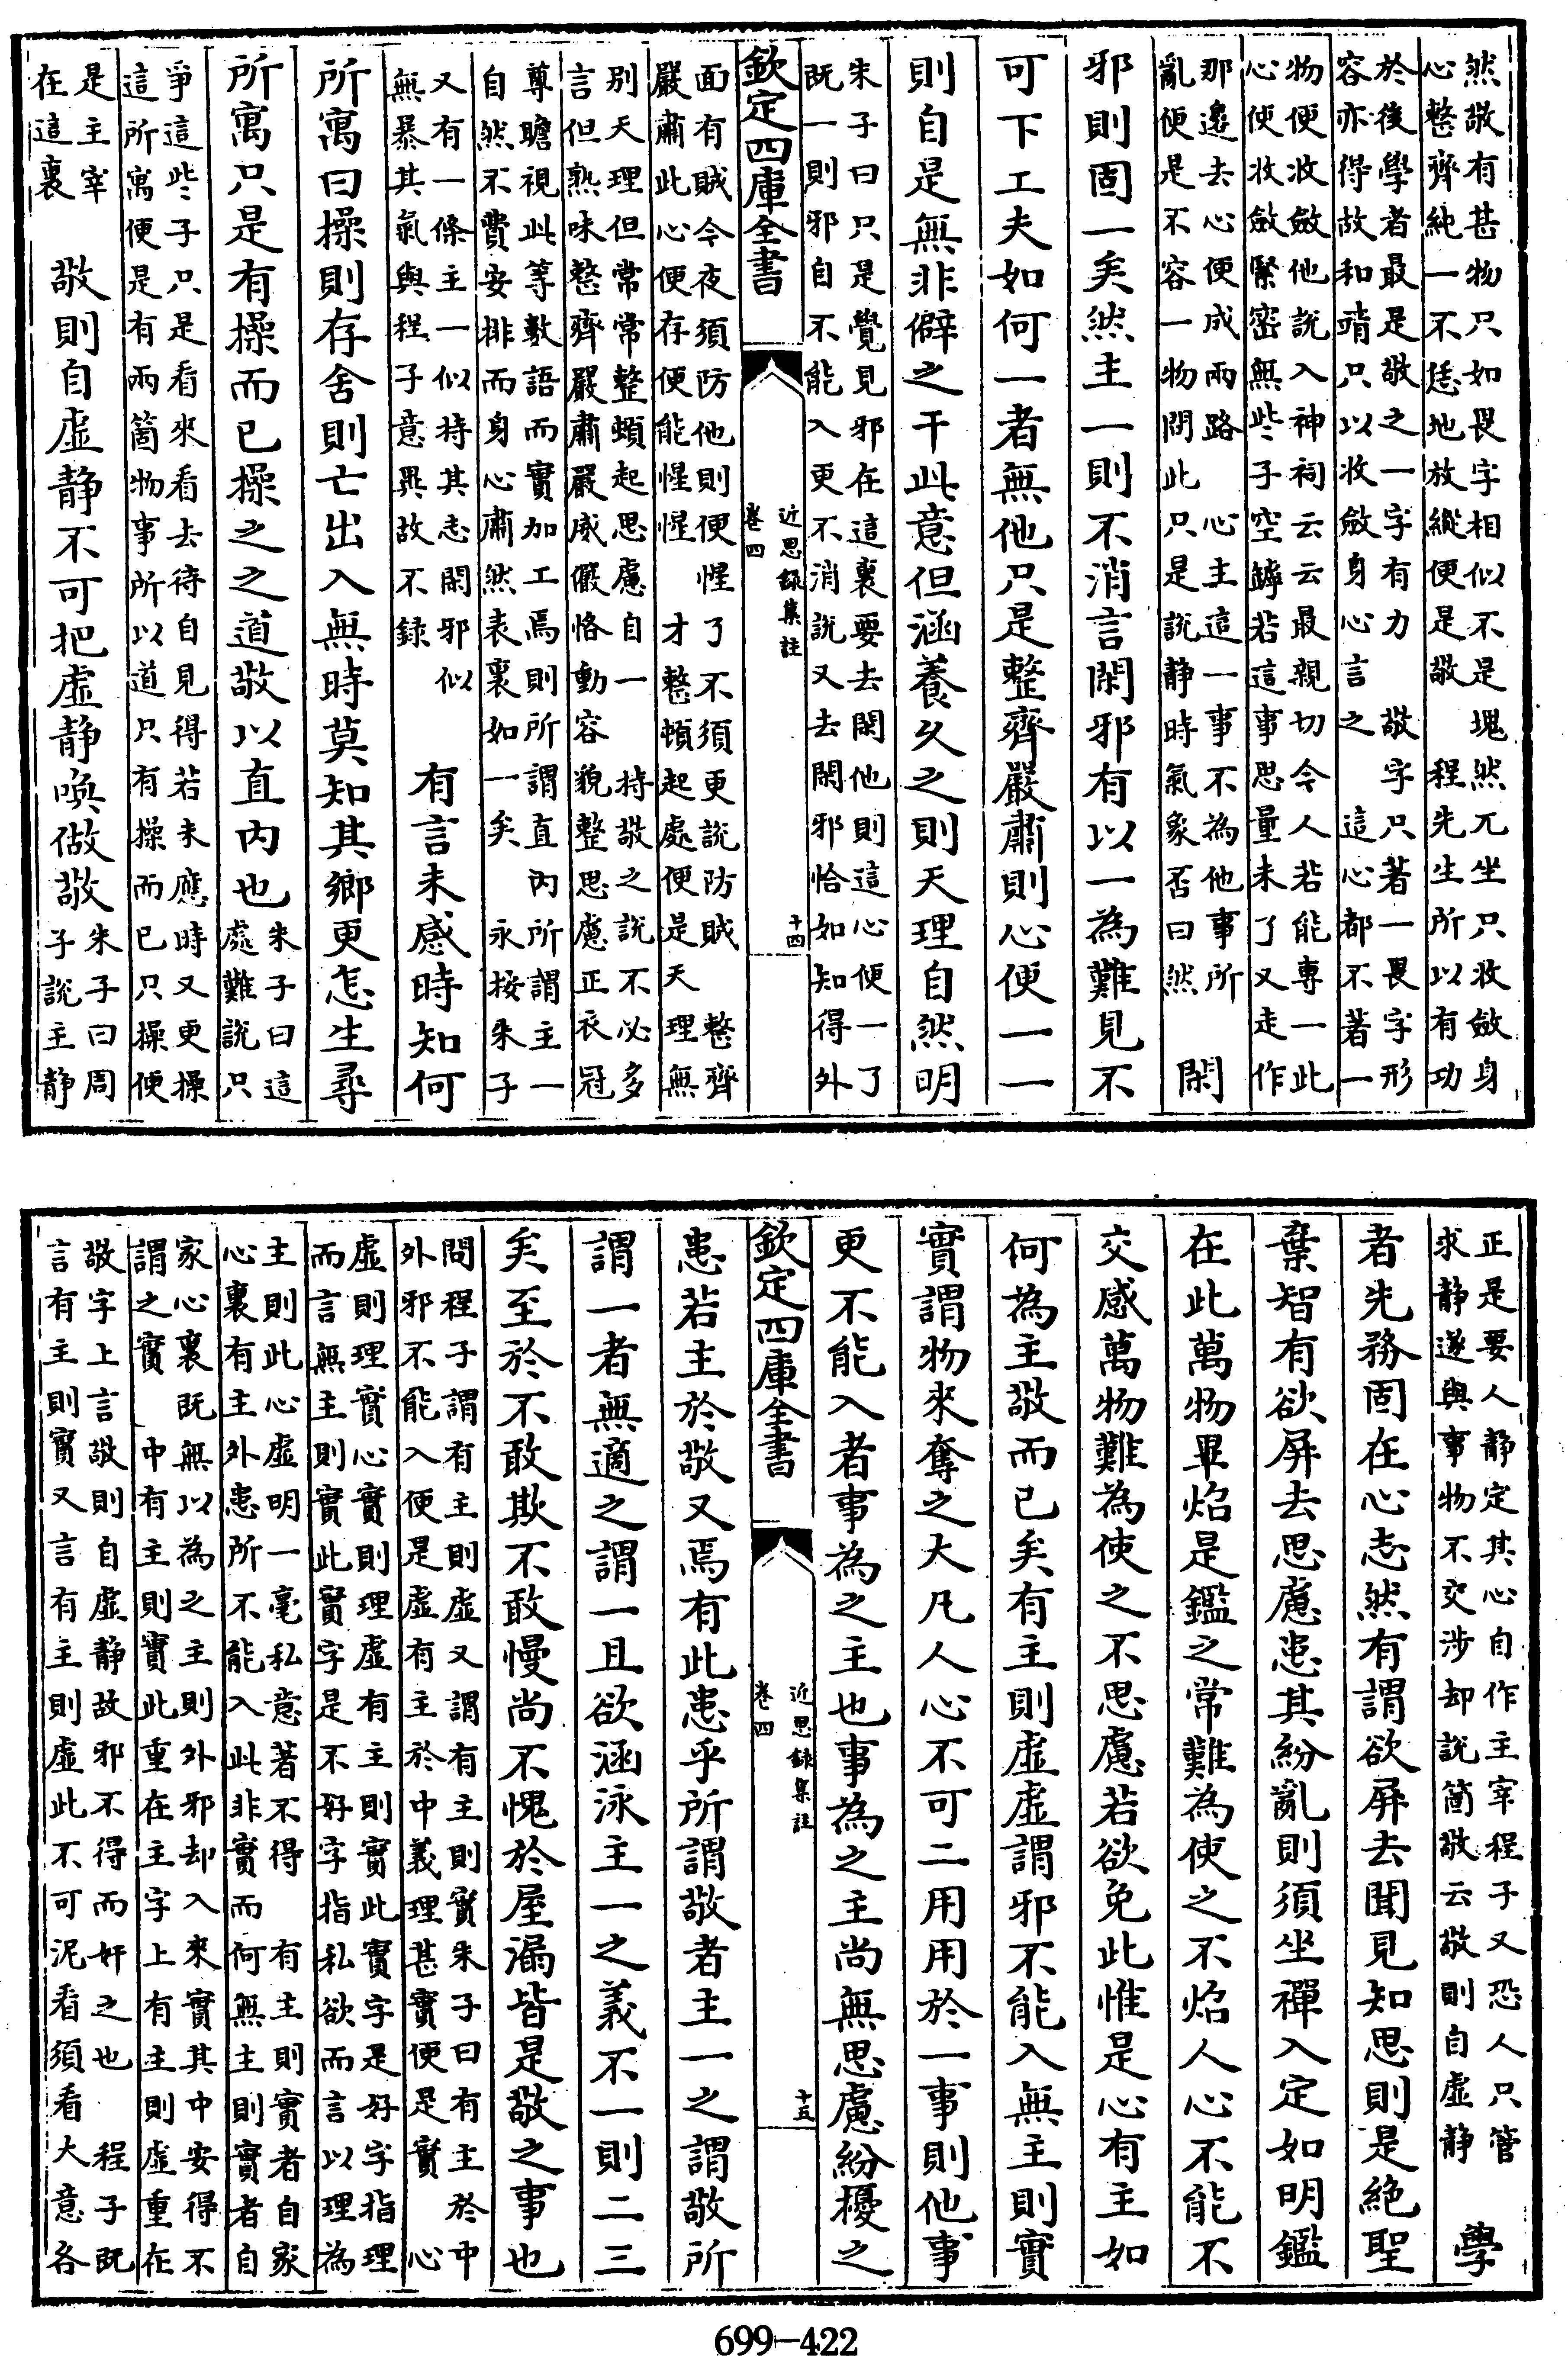 然敬有甚物只如畏字相似不是塊然兀坐只收斂身
心整齊純一不恁地放縱便是敬　程先生所以有功
於後學者最是敬之一字有力　敬字只著一畏字形
容亦得故和靖只以收斂身心言之　這心都不著一
物便收斂他說入神祠云云最親切今人若能專一此
心便收斂緊密無些子空罅若這事思量未了又走作
那邊去心便成兩路　心主這一事不為他事所
亂便是不容一物問此只是說静時氣象否曰然　閑
邪則固一矣然主一則不消言閑邪有以一為難見不
可下工夫如何一者無他只是整齊嚴肅則心便一一
則自是無非僻之干此意但涵養久之則天理自然明
朱子曰只是覺見邪在這裏要去閑他則這心便一了
既一則邪自不能入更不消說又去閑邪恰如知得外
欽定四庫全書　近思錄集註
卷四　十四
面有賊今夜須防他則便惺了不須更說防賊　整齊
嚴肅此心便存便能惺惺　才整頓起處便是天理無
别天理但常常整頓起思慮自一　持敬之說不必多
言但熟味整齊嚴肅嚴威儼恪動容貌整思慮正衣冠
尊瞻視此等數語而實加工焉則所謂直内所謂主一
自然不費安排而身心肅然表裏如一矣　永按朱子
又有一條主一似持其志閑邪似
無暴其氣與程子意異故不録　有言未感時知何
所寓曰操則存舍則亡出入無時莫知其鄉更怎生尋
所寓只是有操而已操之之道敬以直内也
朱子曰這
處難說只
爭這些子只是看來看去待自見得若未應時又更操
這所寓便是有兩箇物事所以道只有操而已只操便
是主宰
在這裏　敬則自虚静不可把虚静喚做敬
朱子曰周
子說主静
正是要人静定其心自作主宰程子又恐人只管
求静遂與事物不交涉却說箇敬云敬則自虚静　學
者先務固在心志然有謂欲屏去聞見知思則是絶聖
棄智有欲屏去思慮患其紛亂則須坐禪入定如明鑑
在此萬物畢焰是鑑之常難為使之不焰人心不能不
交感萬物難為使之不思慮若欲免此惟是心有主如
何為主敬而已矣有主則虚虚謂邪不能入無主則實
實謂物來奪之大凡人心不可二用用於一事則他事
更不能入者事為之主也事為之主尚無思慮紛擾之
欽定四庫全書　近思錄集註
卷四　十五
患若主於敬又焉有此患乎所謂敬者主一之謂敬所
謂一者無適之謂一且欲涵泳主一之義不一則二三
矣至於不敢欺不敢慢尚不愧於屋漏皆是敬之事也
問程子謂有主則虚又謂有主則實朱子曰有主於中
外邪不能入便是虚有主於中義理甚實便是實　心
虚則理實心實則理虚有主則實此實字是好字指理
而言無主則實此實字是不好字指私欲而言以理為
主則此心虚明一毫私意著不得　有主則實者自家
心裏有主外患所不能入此非實而何無主則實者自
家心裏既無以為之主則外邪却入來實其中安得不
謂之實　中有主則實此重在主字上有主則虚重在
敬字上言敬則自虚静故邪不得而奸之也　程子既
言有主則實又言有主則虚此不可泥看須看大意各
699-422